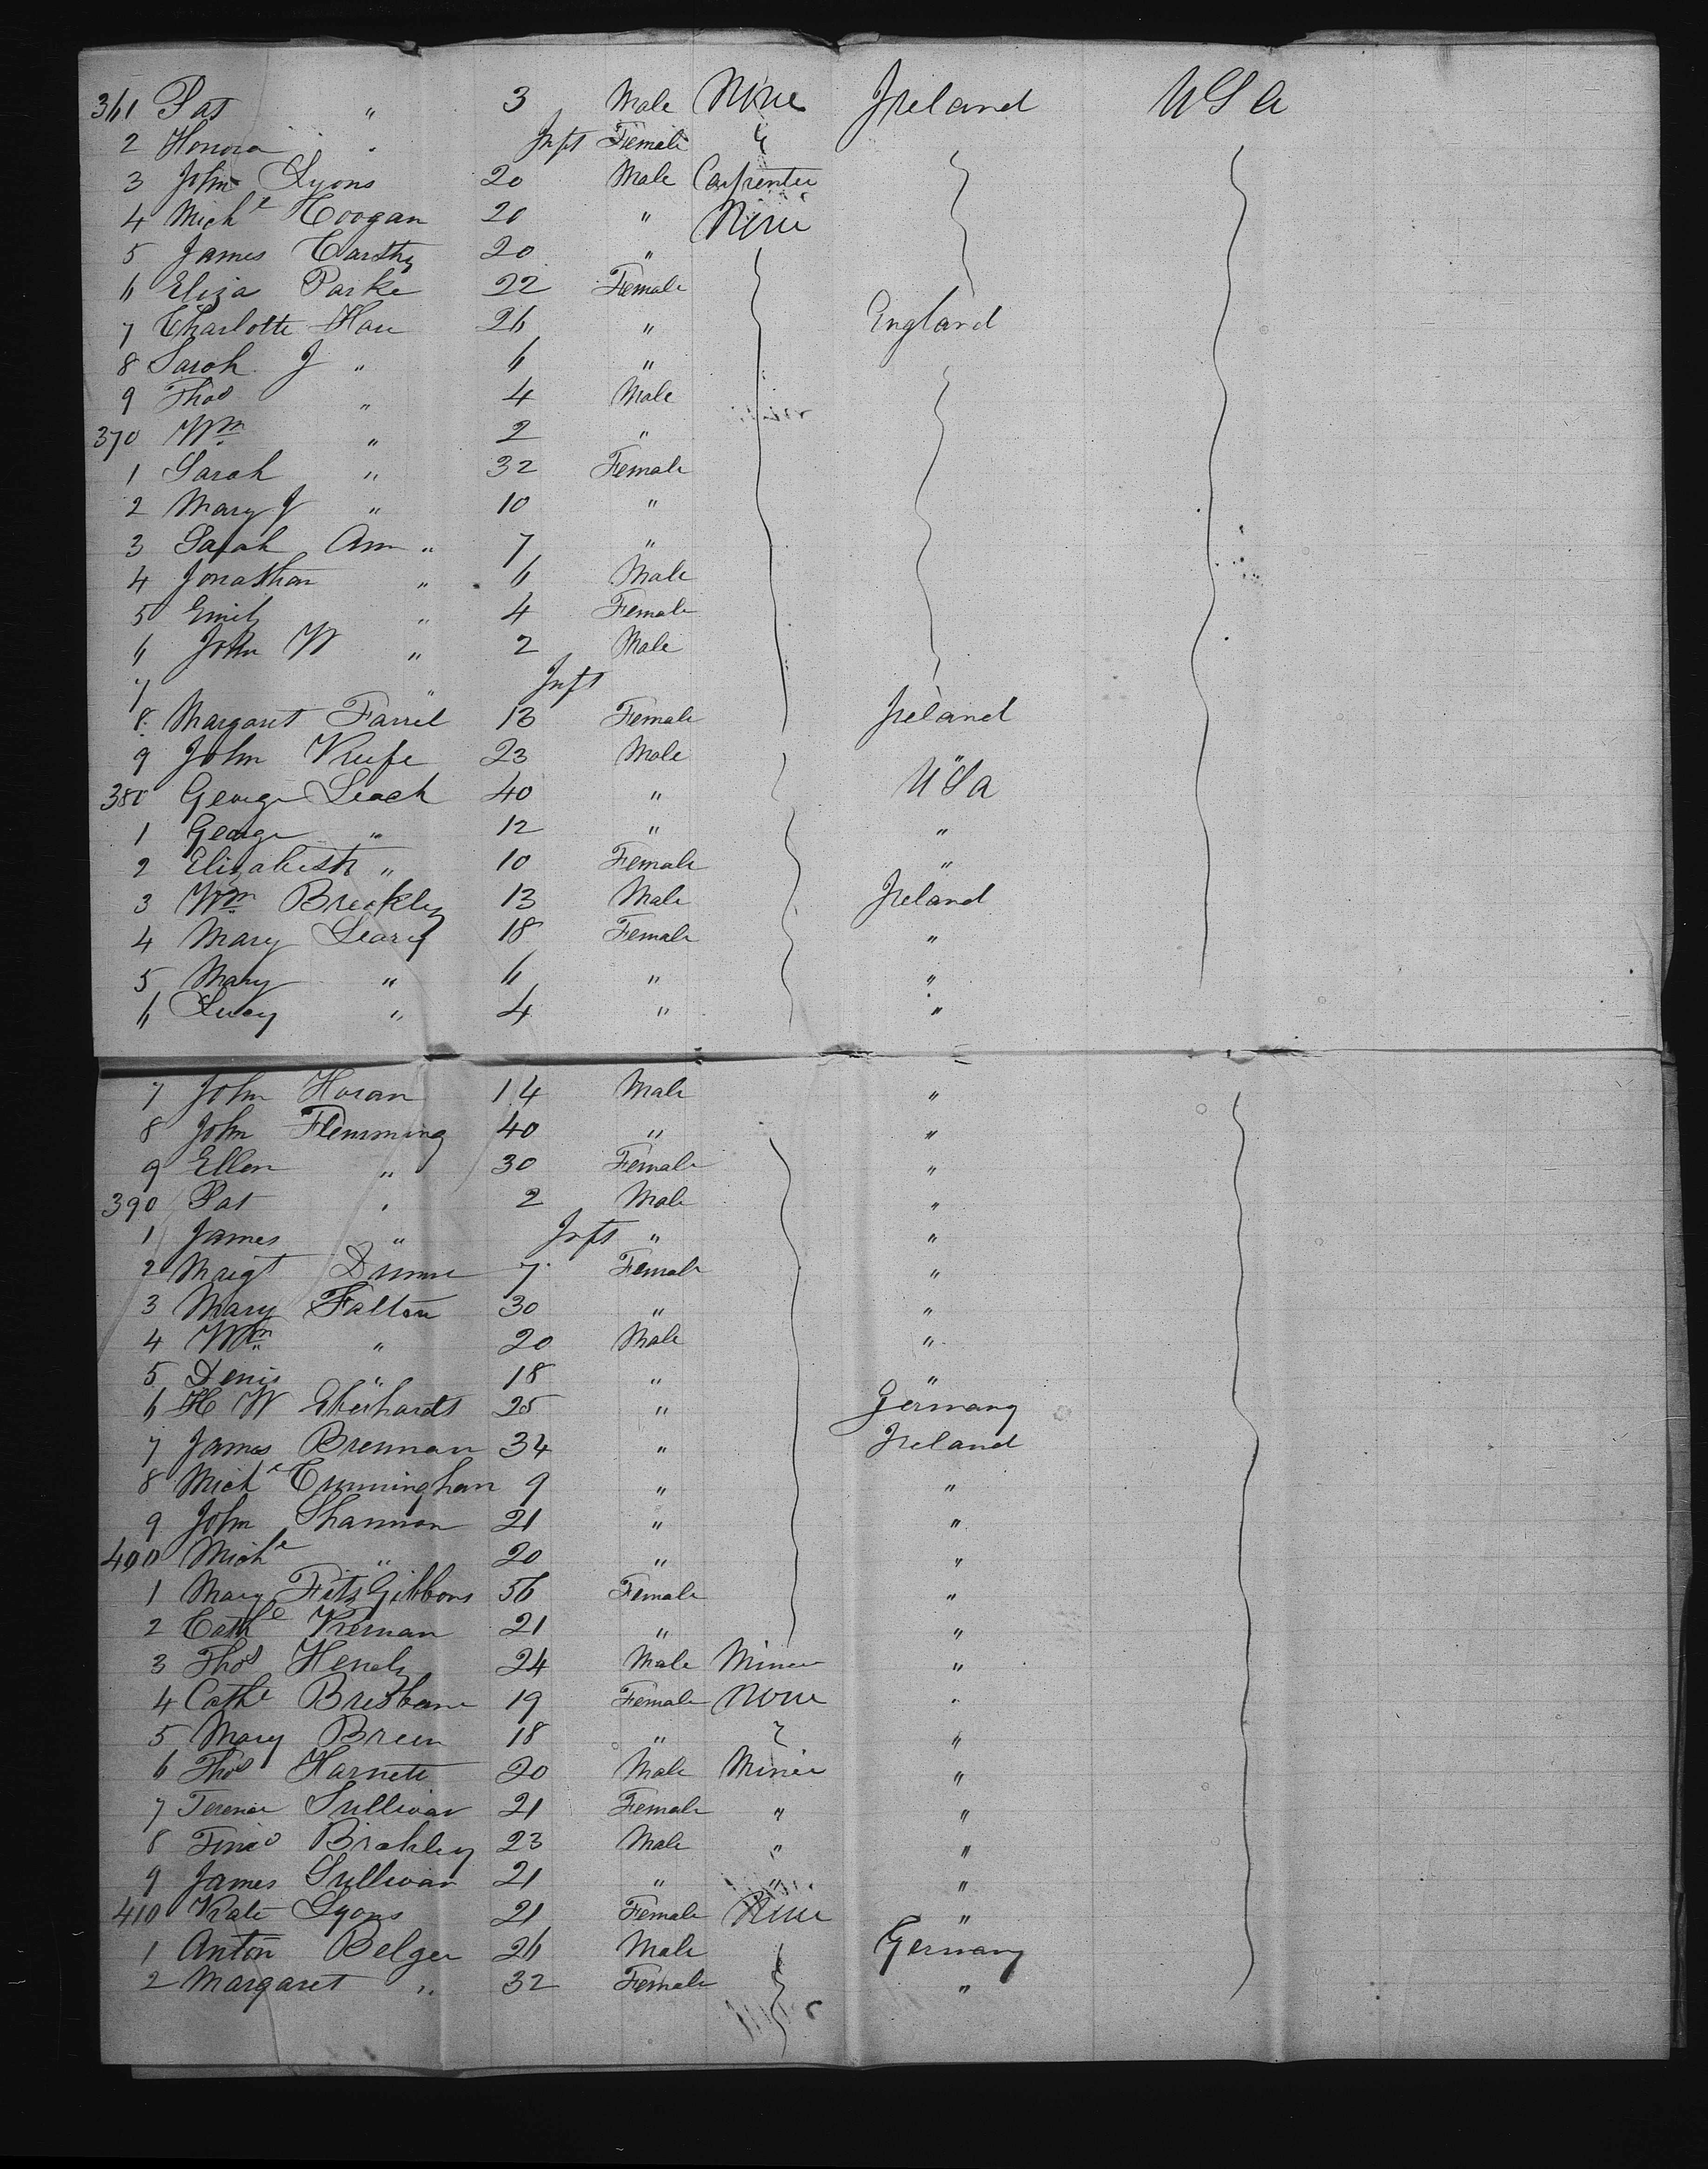 361 Pat " 3 Male None Ireland USA
2 Honora " Inft Female "
3 John Lyons 20 Male Carpenter
4 Michl Hoogan 20 " None
5 James Carthy 20 "
6 Eliza Parke 22 Female
7 Charlotte Hare 26 " England
8 Sarah J " 6 "
9 Thos " 4 Male
370 Wm " 2 "
1 Sarah " 32 Female
2 Mary J " 10 "
3 Sarah Ann " 7 "
4 Jonathan " 6 Male
5 Emily " 4 Female
6 John W " 2 Male
7 " Inft
8 Margaret Farrel 13 Female Ireland
9 John Keefe 23 Male "
380 George Leach 40 " USA
1 George " 12 " "
2 Elizabeth " 10 Female "
3 Wm Breckley 13 Male Ireland
4 Mary Leary 18 Female "
5 Mary " 6 " "
6 Lucy " 4 " "
7 John Horan 14 Male "
8 John Flemming 40 " "
9 Ellen " 30 Female "
390 Pat " 2 Male "
1 James " Inft " "
2 Margt Dunne 7 Female "
3 Mary Falton 30 " "
4 Wm " 20 Male "
5 Denis " 18 " "
6 H W Eberhardt 25 " Germany
7 James Brennan 34 " Ireland
8 Michl Cunningham 9 " "
9 John Shannon 21 " "
400 Michl " 20 " "
1 Mary FitzGibbons 56 Female "
2 Cathe Kiernan 21 " "
3 Thos Henely 24 Male Miner "
4 Cathe Brisbane 19 Female None "
5 Mary Breen 18 " " "
6 Thos Harnett 20 Male Miner "
7 Terence Sullivan 21 Female " "
8 23 Male " "
9 James Sullivan 21 " " "
410 Kate Lyons 21 Female None "
1 Anton Belger 26 Male Germany
2 Margaret " 32 Female "